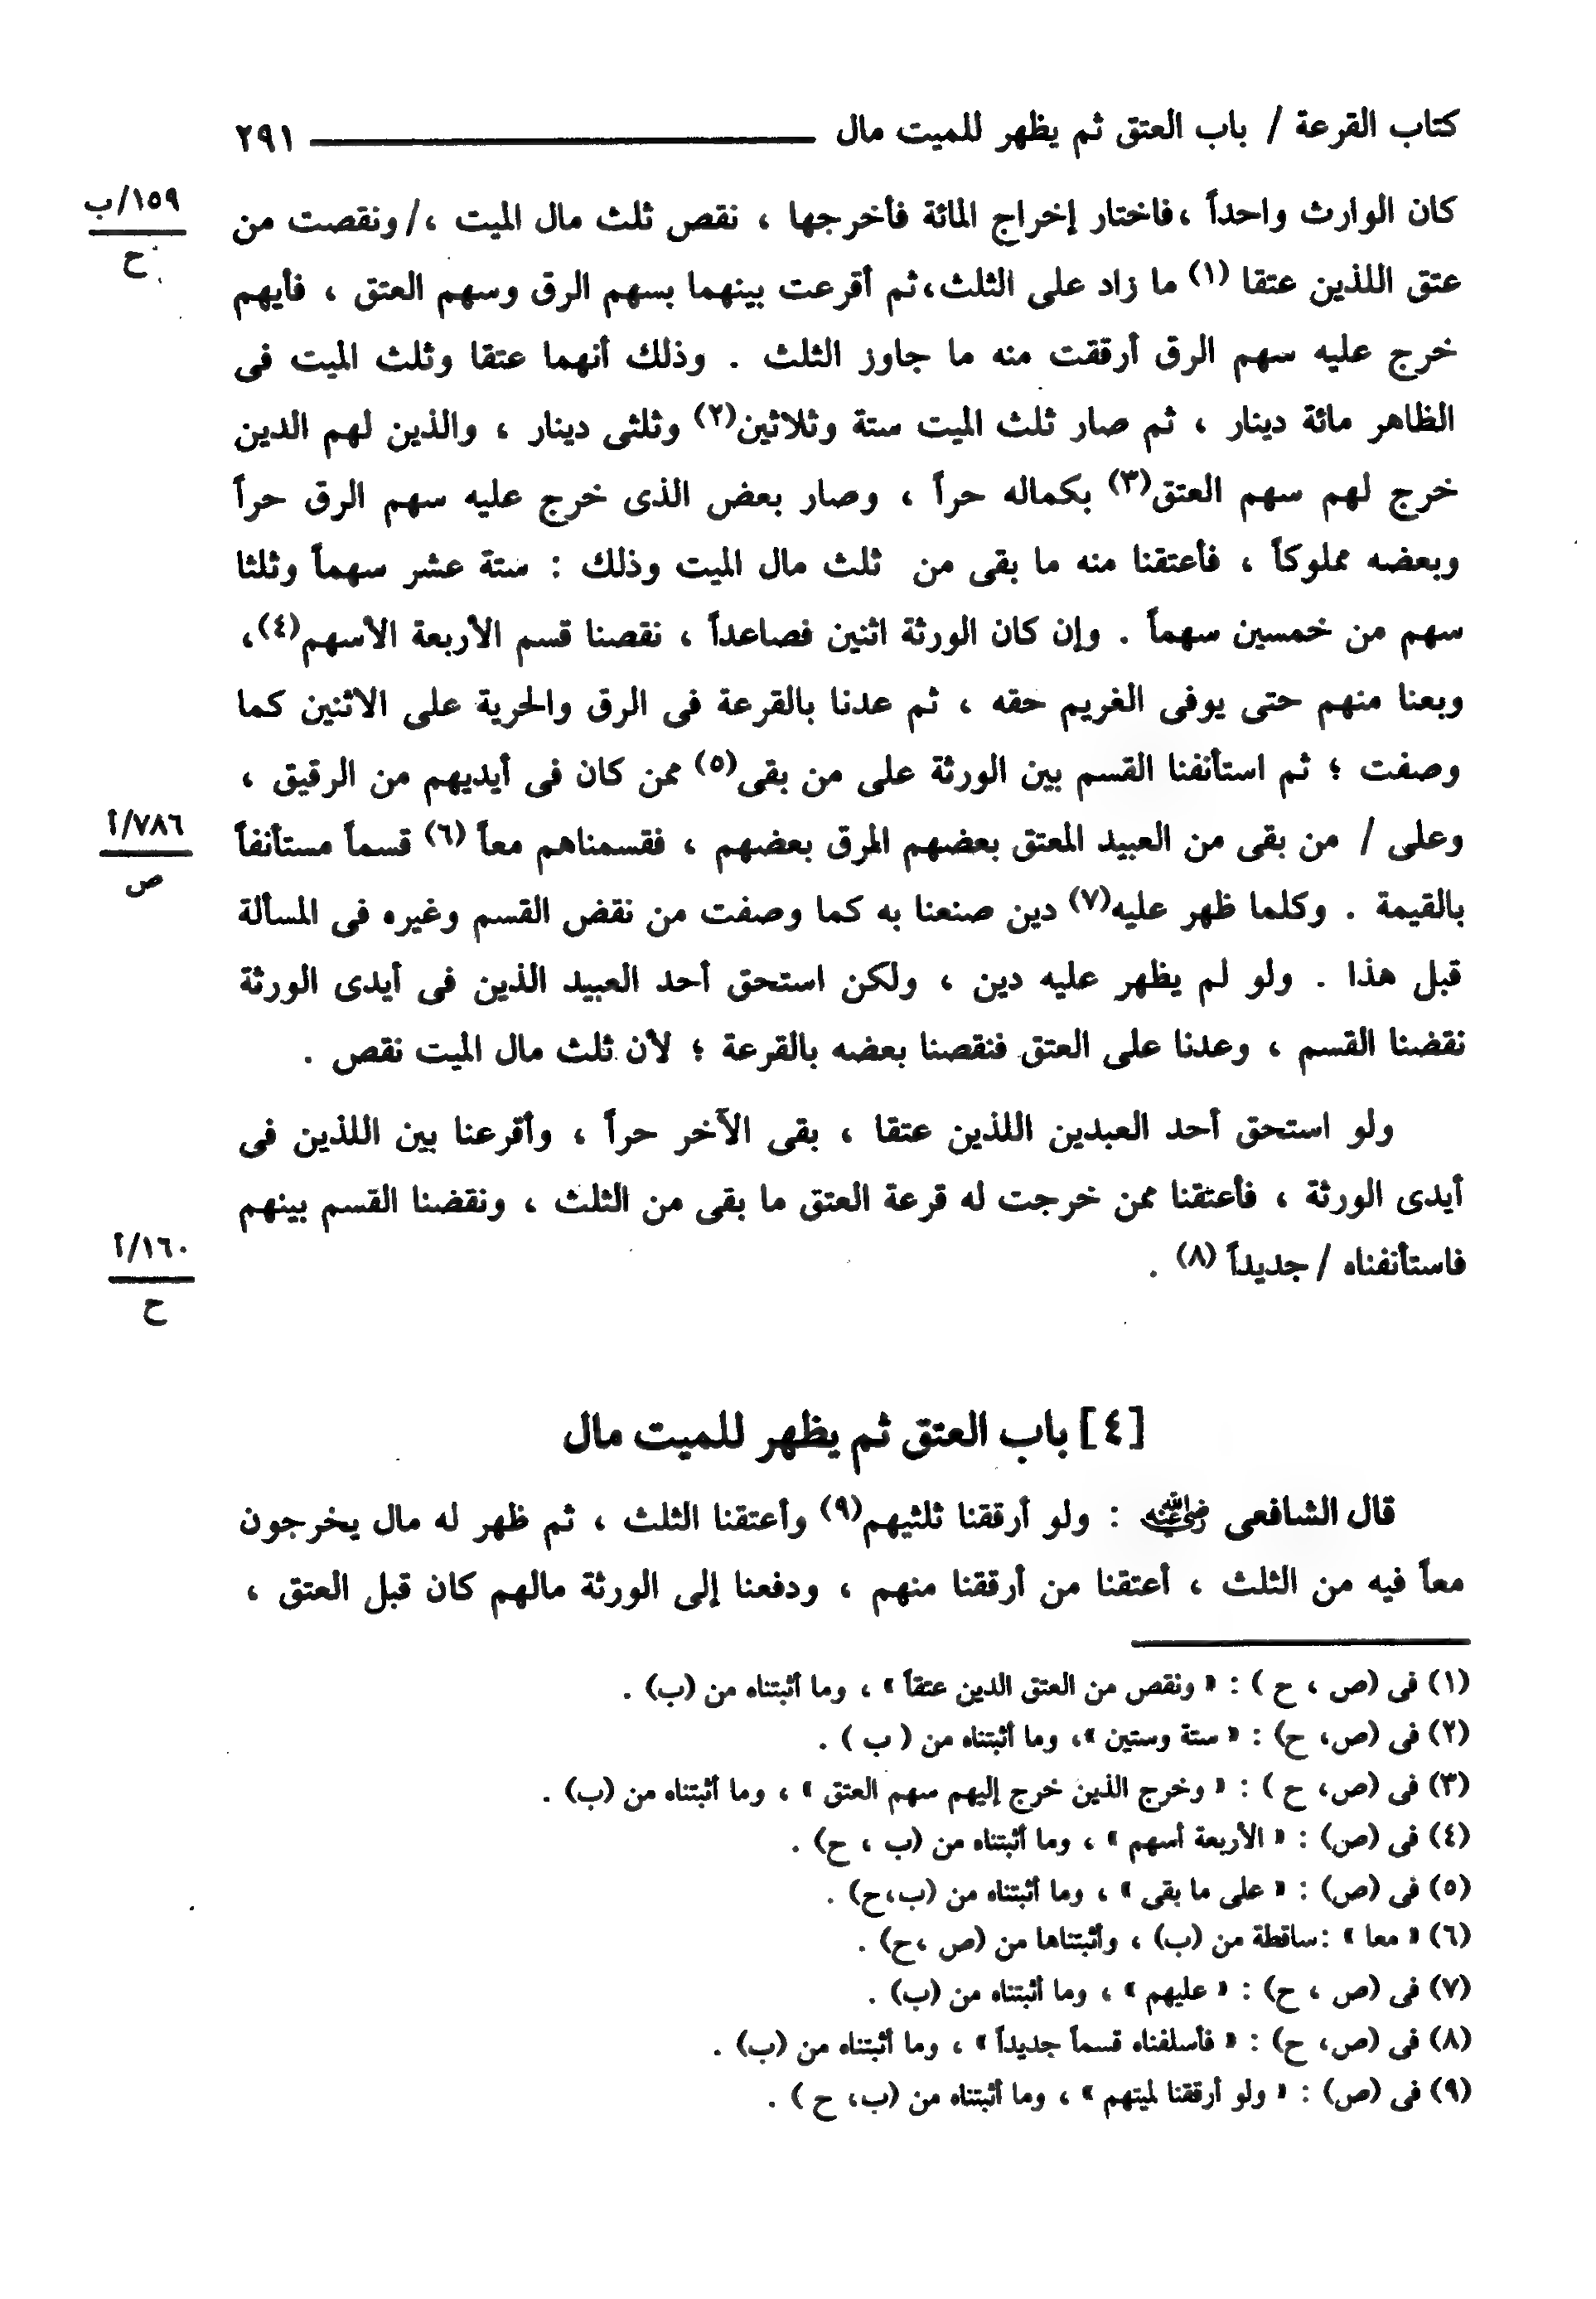 كتاب القرعة / باب العتق ثم يظهر للميت مال ٢٩١
كان الوارث واحداً ،فاختار إخراج المائة فأخرجها ، نقص ثلث مال الميت ،/ونقصت من
١٥٩/ب
ح
عتق اللذين عتقا (١) ما زاد على الثلث،ثم أقرعت بينهما بسهم الرق وسهم العتق ، فأيهم
خرج عليه سهم الرق أرققت منه ما جاوز الثلث . وذلك أنهما عتقا وثلث الميت فى
الظاهر مائة دينار ، ثم صار ثلث الميت ستة وثلاثين(٢) وثلثى دينار ، والذين لهم الدين
خرج لهم سهم العتق(٣) بكماله حراً ، وصار بعض الذى خرج عليه سهم الرق حراً
وبعضه مملوكاً ، فأعتقنا منه ما بقى من ثلث مال الميت وذلك : ستة عشر سهماً وثلثا
سهم من خمسين سهماً . وإن كان الورثة اثنين فصاعداً ، نقصنا قسم الأربعة الأسهم(٤)،
وبعنا منهم حتى يوفى الغريم حقه ، ثم عدنا بالقرعة فى الرق والحرية على الاثنين كما
وصفت ؛ ثم استأنفنا القسم بين الورثة على من بقى(٥) ممن كان فى أيديهم من الرقيق ،
وعلى / من بقى من العبيد المعتق بعضهم المرق بعضهم ، فقسمناهم معاً (٦) قسماً مستأنفاً
٧٨٦/أ
ص
بالقيمة . وكلما ظهر عليه(٧) دين صنعنا به كما وصفت من نقض القسم وغيره فى المسألة
قبل هذا . ولو لم يظهر عليه دين ، ولكن استحق أحد العبيد الذين فى أيدى الورثة
نقضنا القسم ، وعدنا على العتق فنقصنا بعضه بالقرعة ؛ لأن ثلث مال الميت نقص .
ولو استحق أحد العبدين اللذين عتقا ، بقى الآخر حراً ، وأقرعنا بين اللذين فى
أيدى الورثة ، فأعتقنا ممن خرجت له قرعة العتق ما بقى من الثلث ، ونقضنا القسم بينهم
فاستأنفناه / جديداً (٨) .
١٦٠/أ
ح
[٤] باب العتق ثم يظهر للميت مال
قال الشافعى رضي الله عنه : ولو أرققنا ثلثيهم(٩) وأعتقنا الثلث ، ثم ظهر له مال يخرجون
معاً فيه من الثلث ، أعتقنا من أرققنا منهم ، ودفعنا إلى الورثة مالهم كان قبل العتق ،
(١) فى (ص ، ح ) : « ونقص من العتق الدين عتقاً » ، وما أثبتناه من (ب) .
(٢) فى (ص، ح) : « ستة وستين »، وما أثبتناه من ( ب ) .
(٣) فى (ص، ح ) : « وخرج الذين خرج إليهم سهم العتق » ، وما أثبتناه من (ب) .
(٤) فى (ص) : « الأربعة أسهم » ، وما أثبتناه من (ب ، ح) .
(٥) فى (ص) : « على ما بقى » ، وما أثبتناه من (ب،ح) .
(٦) « معا » :ساقطة من (ب) ، وأثبتناها من (ص ،ح) .
(٧) فى (ص ، ح) : « عليهم » ، وما أثبتناه من (ب) .
(٨) فى (ص، ح) : « فأسلفناه قسماً جديداً » ، وما أثبتناه من (ب) .
(٩) فى (ص) : « ولو أرققنا لميتهم » ، وما أثبتناه من (ب، ح ) .